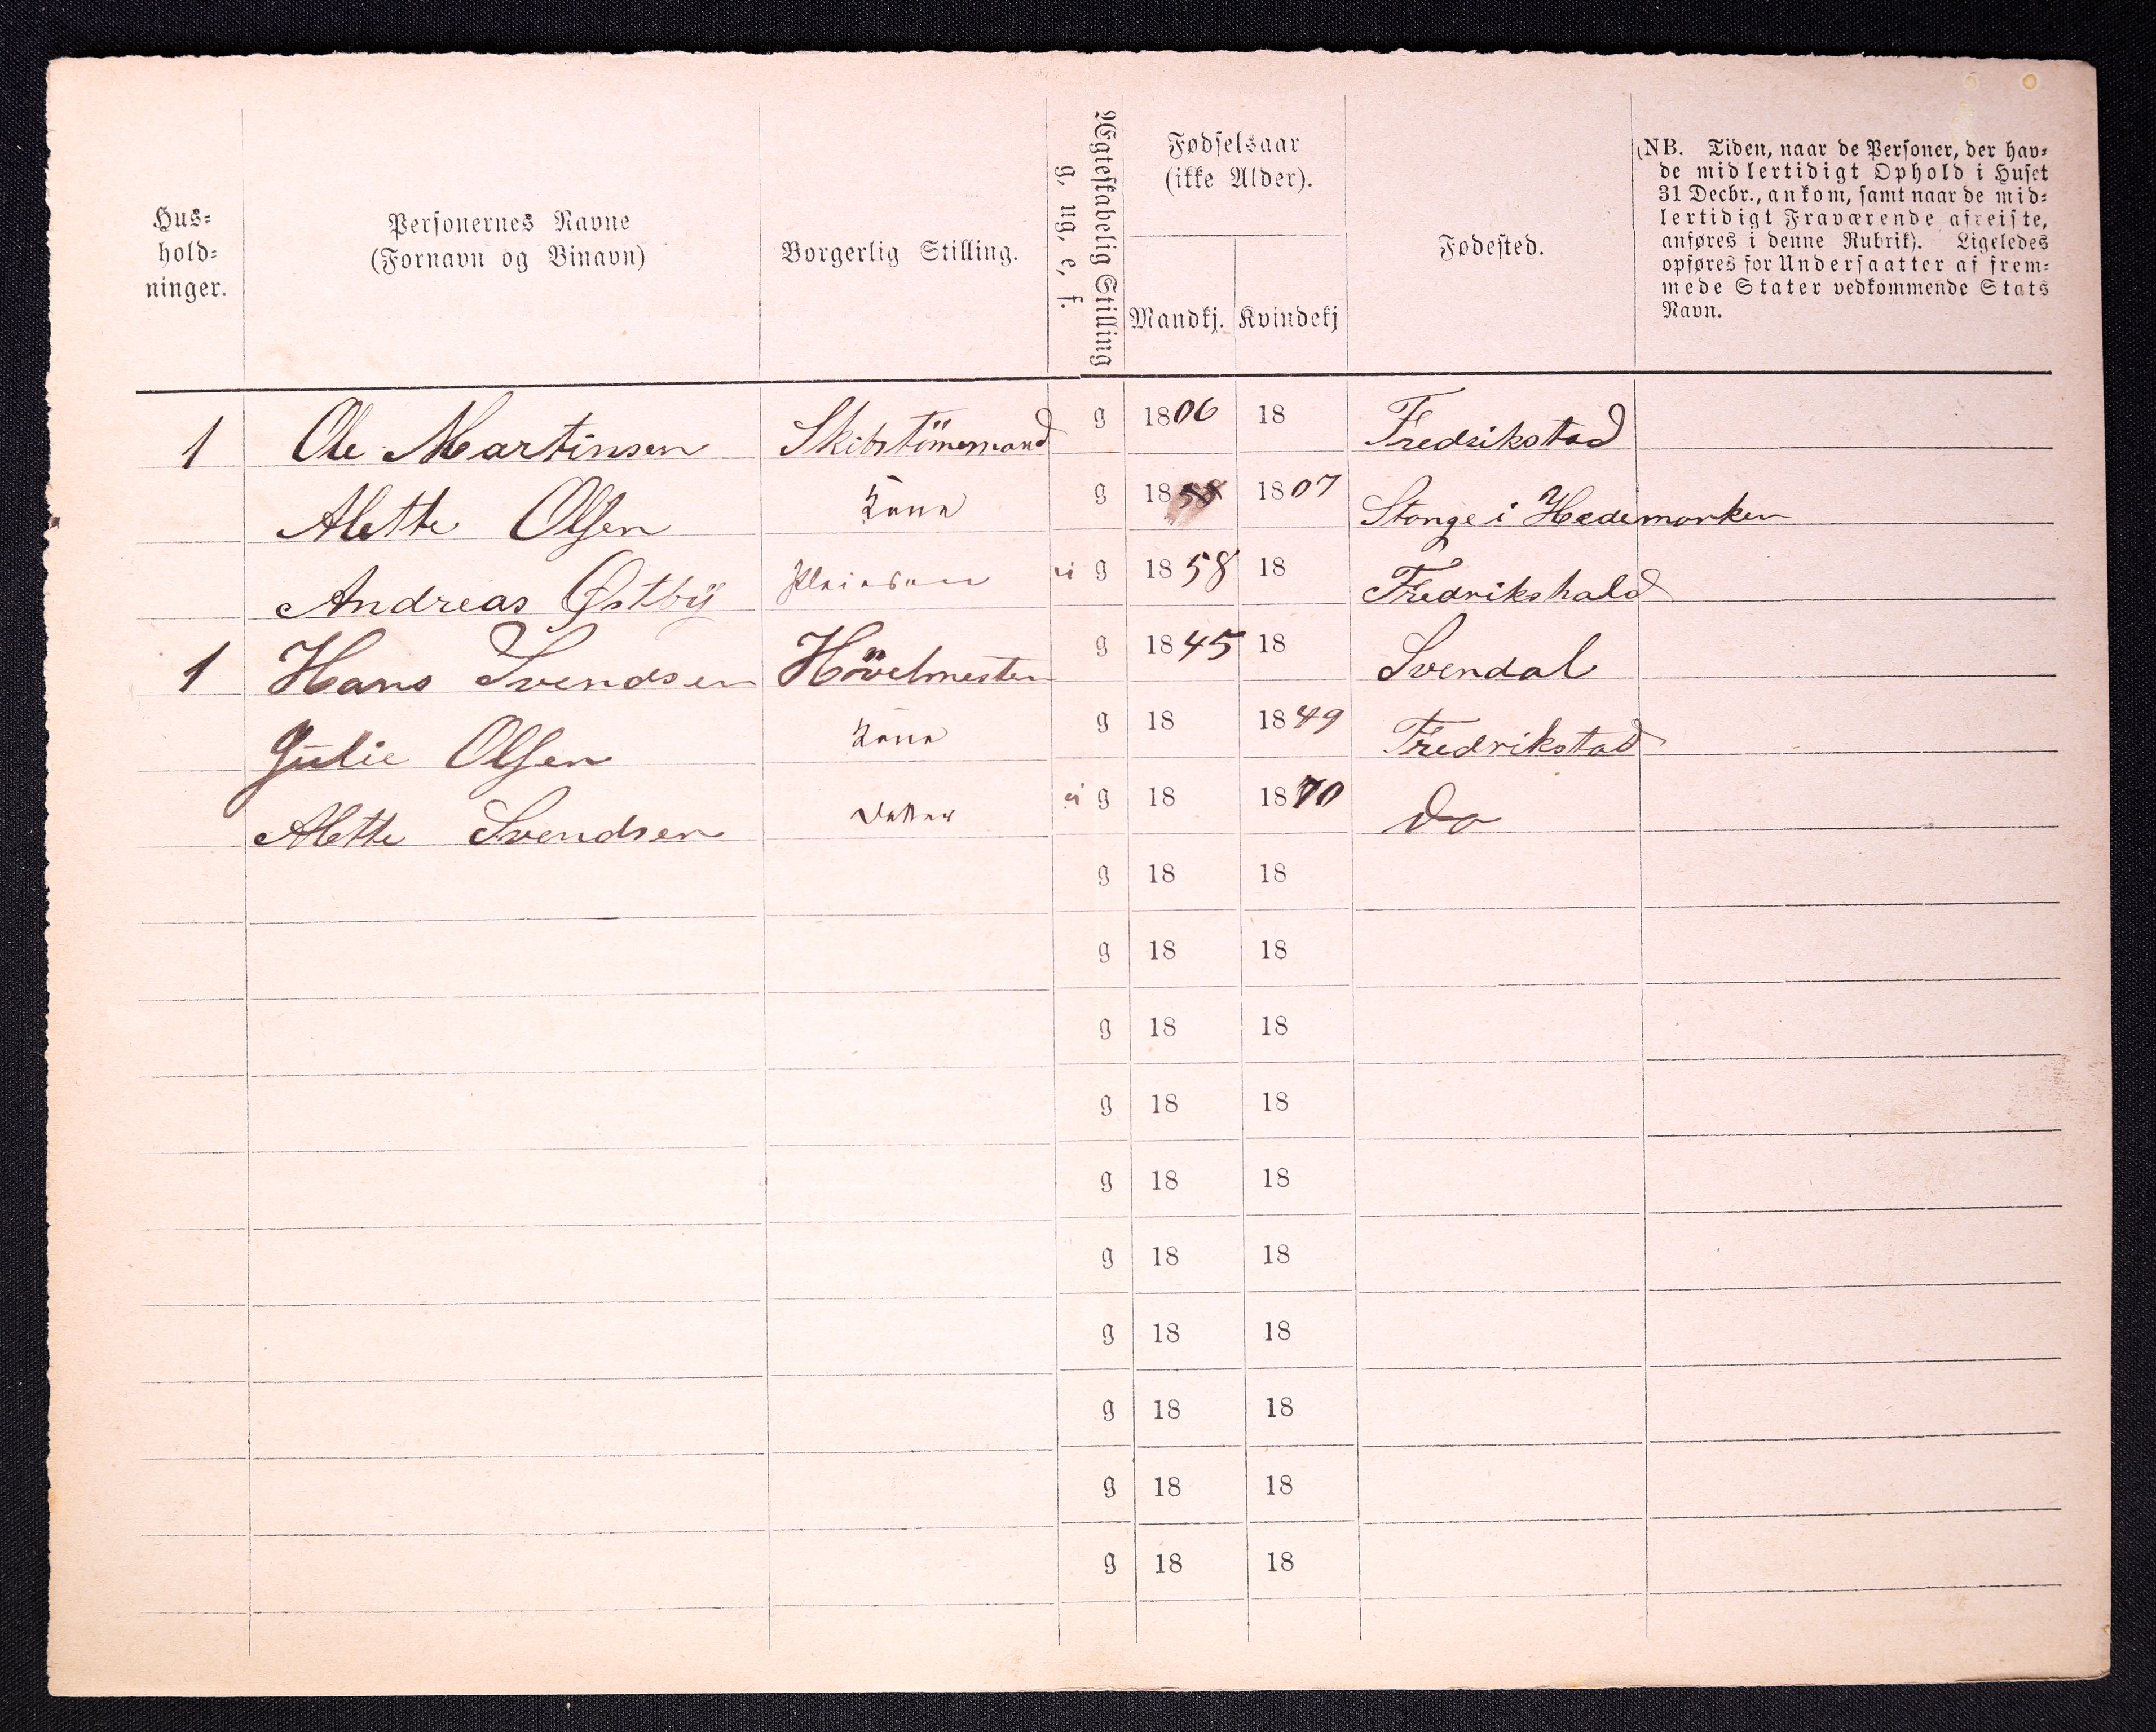 Hus-
hold-
ninger.
Personernes Navne
(Fornavn og Binavn)
Borgerlig Stilling.
Ægteskabelig Stilling
g, ug, e, f.
Fødselsaar
(ikke Alder).
Mandkj. Kvindekj
Fødested.
(NB. Tiden, naar de Personer, der hav-
de midlertidigt Ophold i Huset
31 Decbr., ankom, samt naar de mid-
lertidigt Fraværende afreiste,
anføres i denne Rubrik). Ligeledes
opføres for Undersaatter af frem-
mede Stater vedkommende Stats
Navn.
1 Ole Martinsen Skibstömemand g 1806 18 Fredrikstad
Alette Olsen Kone g 18 1807 Stange i Hedemarken
Andreas Østbÿ Pleiesøn ei g 1858 18 Fredrikshald
1 Hans Svendsen Hövelmester g 1845 18 Svendal
Julie Olsen Kone g 18 1849 Fredrikstad
Alette Svendsen Datter ei g 18 1870 do
g 18 18
g 18 18
g 18 18
g 18 18
g 18 18
g 18 18
g 18 18
g 18 18
g 18 18
g 18 18